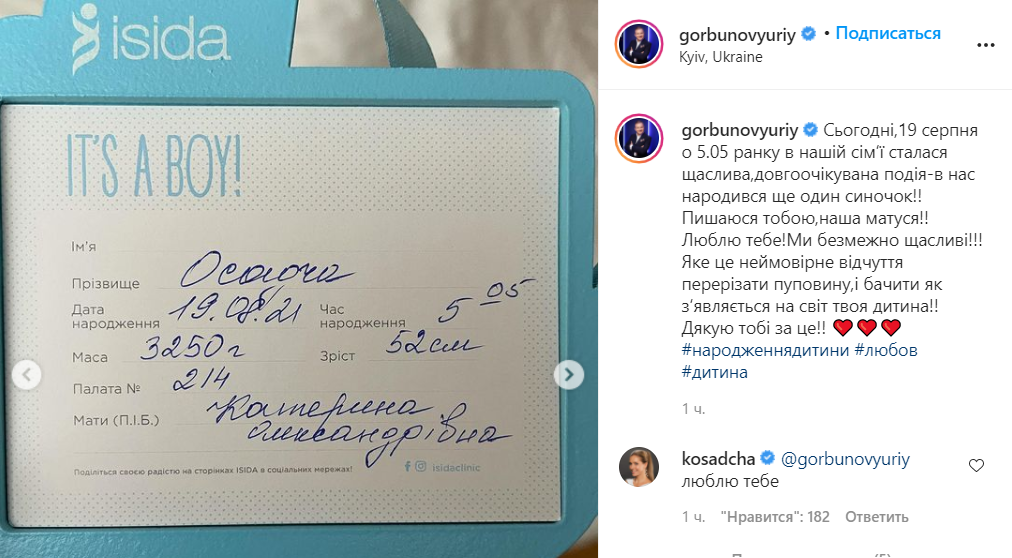 isida
IT'S A BOY!
Ім'я
Прізвище Осадча
Дата народження 19.08.21 Час народження 5 05
Маса 3250 г Зріст 52 см
Палата № 214
Мати (П.І.Б.) Катерина
Олександрівна
Поділіться своєю радістю на сторінках ISIDA в соціальних мережах! isidaclinic
gorbunovyuriy • Подписаться
Kyiv, Ukraine
gorbunovyuriy Сьогодні,19 серпня
о 5.05 ранку в нашій сім’ї сталася
щаслива,довгоочікувана подія-в нас
народився ще один синочок!!
Пишаюся тобою,наша матуся!!
Люблю тебе!Ми безмежно щасливі!!!
Яке це неймовірне відчуття
перерізати пуповину,і бачити як
з’являється на світ твоя дитина!!
Дякую тобі за це!! ❤️❤️❤️
#народженнядитини #любов
#дитина
1 ч.
kosadcha @gorbunovyuriy
люблю тебе
1 ч. "Нравится": 182 Ответить